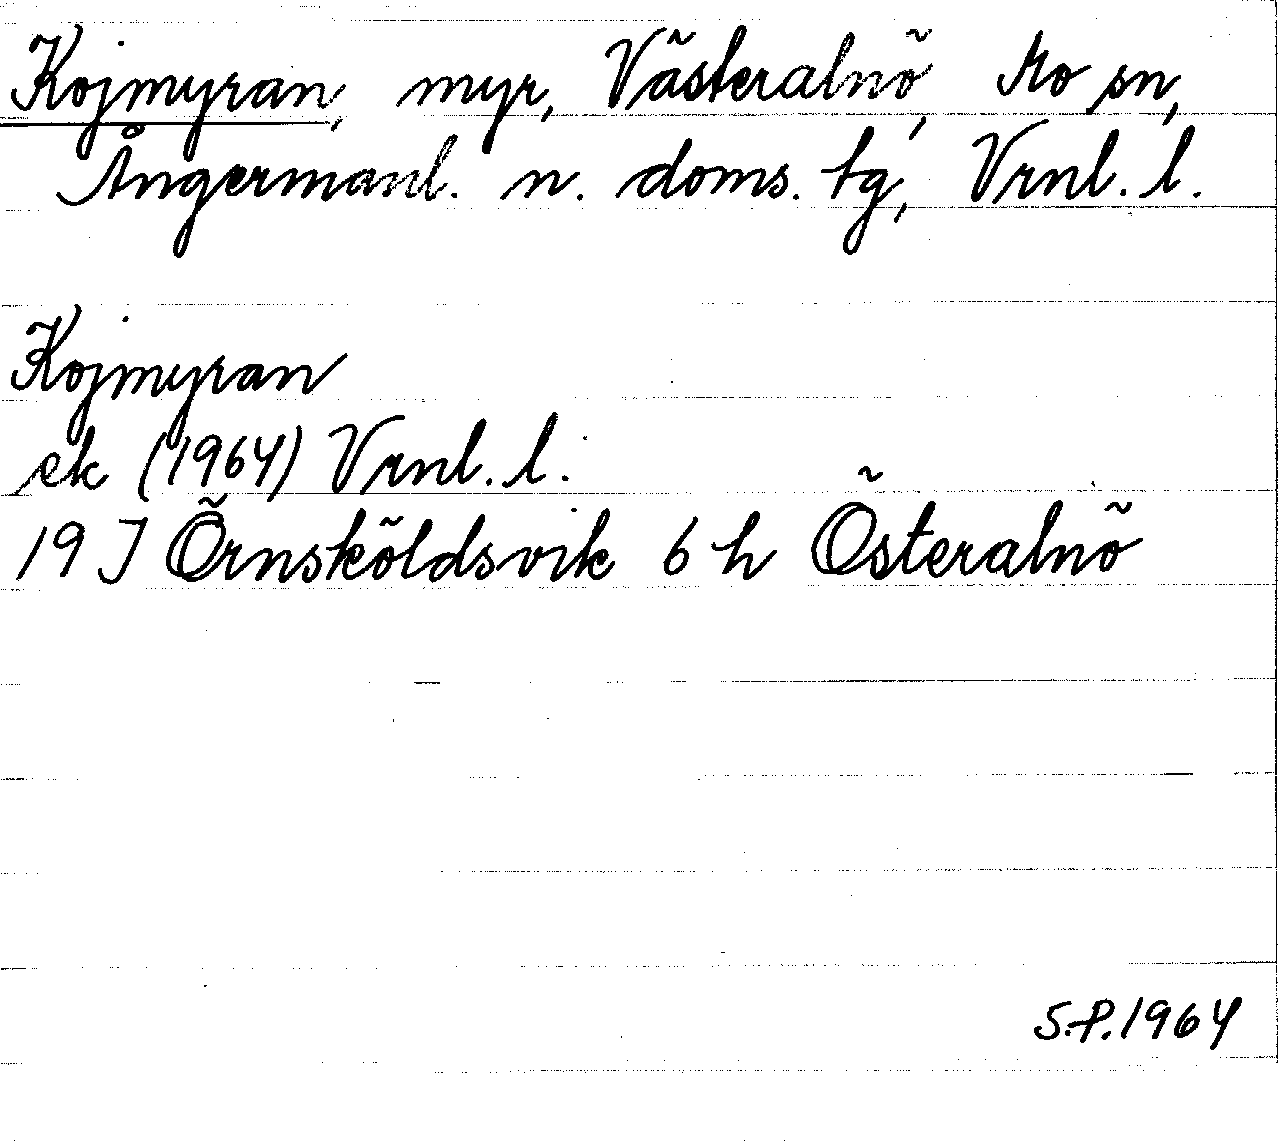 Kojmyran, myr, Västeralnö, Mo sn,
Ångermanl. n. doms. tg, Vrnl. l.
Kojmyran
ek (1964) Vrnl. l.
19 J Örnsköldsvik 6 h Österalnö
S.P. 1964